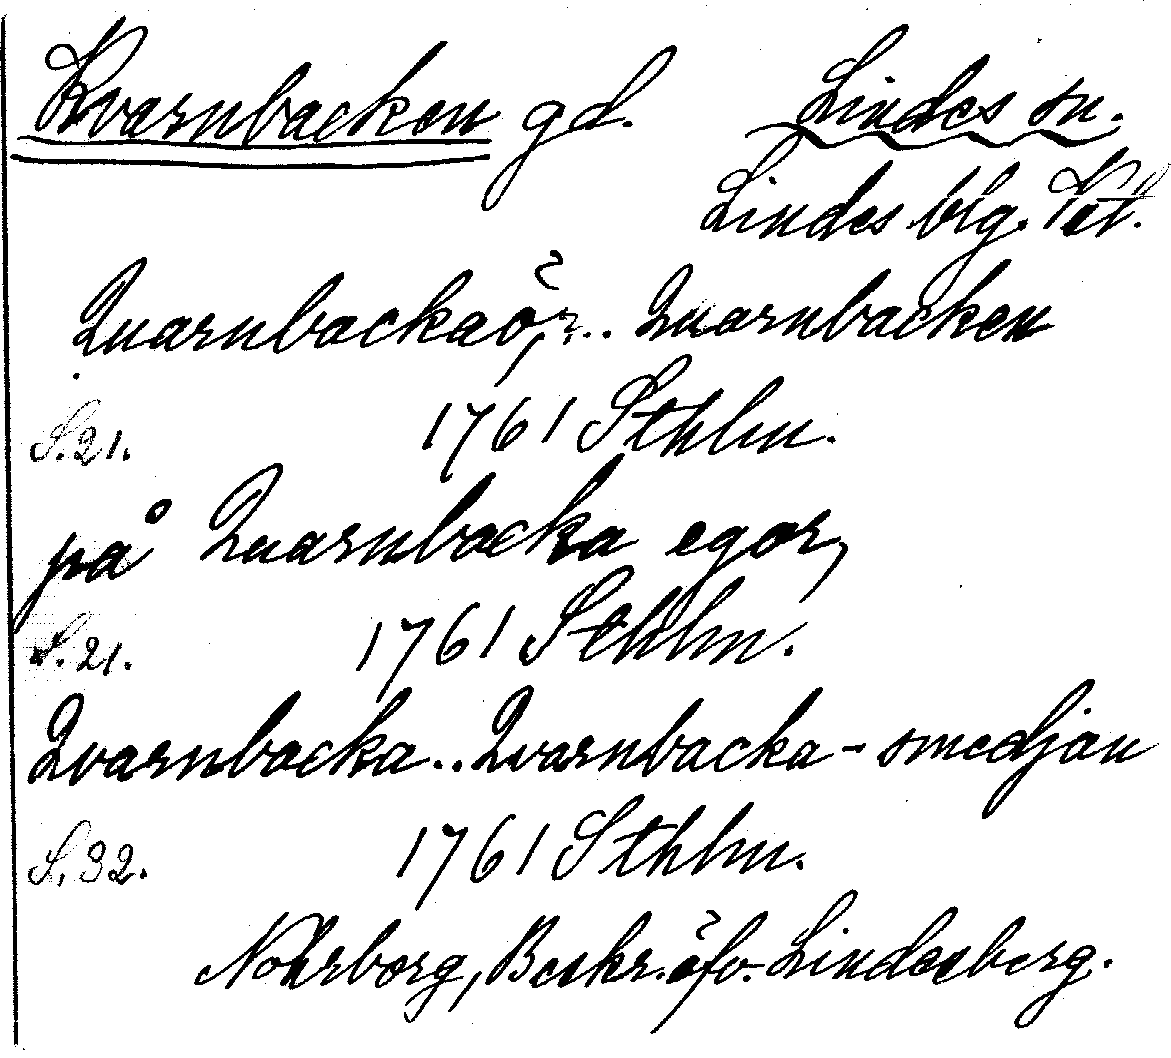 Kvarnbacken gd. Lindes sn.
Lindes blg. Väl.
Quarnbackaön.. Quarnbacken
S.21. 1761 Sthlm.
på Quarnbacka egor,
S.21. 1761 Sthlm.
Qvarnbacka.. Qvarnbacka-smedjan
S.32. 1761 Sthlm.
Nohrborg, Beskr. öfv. Lindesberg.